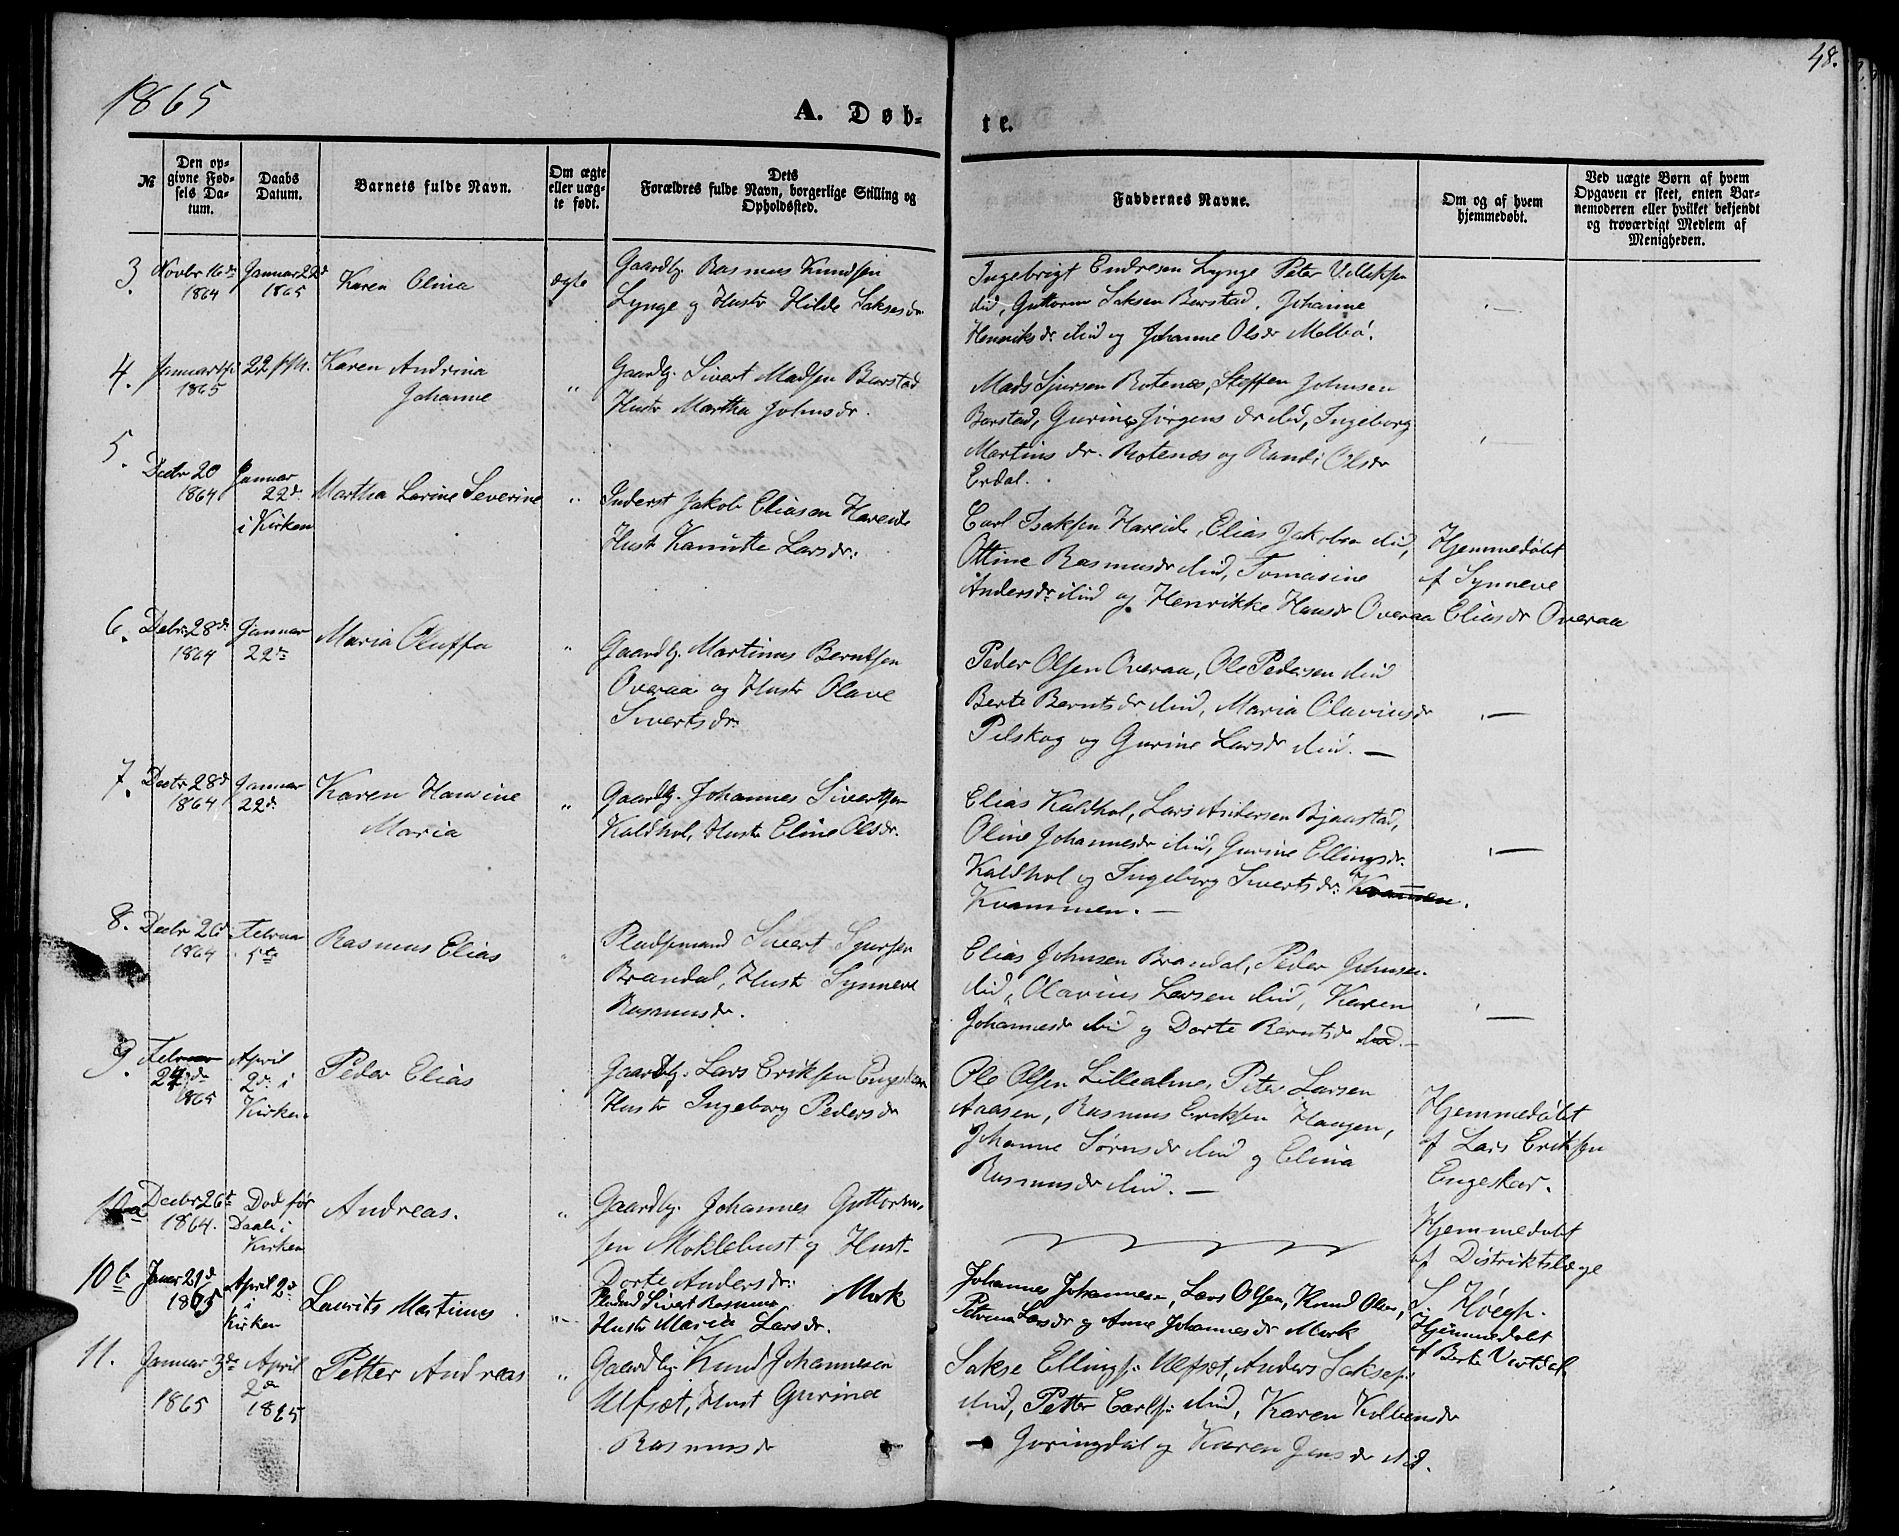 1865
48.
A. Døb-
te.
№
Den op-
givne Fød-
sels Da-
tum.
Daabs
Datum.
Barnets fulde Navn.
Om ægte
eller uæg-
te født.
Dets
Forældres fulde Navn, borgerlige Stilling og
Opholdssted.
Faddernes Navne.
Om og af hvem
hjemmedøbt.
Ved uægte Børn af hvem
Opgaven er skeet, enten Bar-
nemoderen eller hvilket bekjendt
og troværdigt Medlem af
Menigheden.
3.
Novbr 16de
1864
Januar 22d
1865
Karen Olina
ægte
Gaardbr. Rasmus Knudsen
Lynge og Hustr Hilde Saksesdr
Ingebrigt Endresen Lynge Peter
ibid, Guttorm Saksen Barstad, Johanne
Henriksdr ibid og Johanne Olsdr Melbø.
4.
Januar
1865
22
Karen Andrina
Johanne
"
Gaardbr. Sivert Madsen Barstad
Hustr Martha Johnsdr.
Mads Sjursen Rotenes, Steffen Johnsen
Barstad, Gurine Jørgensdr ibid, Ingeborg
Martinsdr. Rotenæs og Randi Olsdr
Erdal.
5.
Decbr 20
1864
Januar
22d.
i Kirken
Martha Larine Severine
"
Inderst Jakob Eliasen Hareide
Hust Kanutte Larsdr.
Carl Isaksen Hareide, Elias Jakobsen ibid,
Ottine Rasmusdr ibid, Tomasine
Andersdr ibid og Henrikke Hansdr Overaa
Hjemmedøbt
af Synneve
Eliasdr Overaa
6.
Decbr 28de
1864
Januar
22de
Maria Oluffa
"
Gaardbr. Martinus Berntsen
Overaa og Hustr Olave
Sivertsdr.
Peder Olsen Overaa, Ole Pedersen ibid
Berte Berntsdr ibid, Maria Olavinsdr
Pilskog og Gurine Larsdr ibid. —
7.
Decbr 28d
1864
Januar
22d.
Karen Hansine
Maria
"
Gaardbr. Johannes Sivertsen
Kaldhol, Hustr Eline Olsdr.
Elias Kaldhol, Lars Andersen Bjaastad,
Oline Johannesdr ibid, Gurine Ellingsdr.
Kaldhol og Ingeborg Sivertsdr. Kvammen.
Kvammen. —
8.
Decbr 26d
1864
Februar
5te
Rasmus Elias
"
Pladsmand Sivert Sjursen
Brandal, Hustr Synneve
Rasmusdr.
Elias Johnsen Brandal, Peder Johnsen
ibid, Olavius Larsen ibid, Karen
Johannesdr ibid og Dorte Berntsdr ibid. —
9.
Februar
24de
1865
April
2d. i
Kirken
Peder Elias
Gaardbr. Lars Eriksen Engeskar
Hustr Ingeborg Pedersdr
Ole Olsen Lillealme, Peter Larsen
Aaasen, Rasmus Eriksen Haugen,
Johanne Sørnsdr ibid og Elina
Rasmusdr ibid. —
Hjemmedøbt
af Lars Eriksen
Engeskar.
10a
Decbr 26te
1864.
Død før
Daab i
Kirken
Andreas.
"
Gaardbr. Johannes Guttorm-
sen Moklebust og Hust-
Dorte Andersdr.
Hjemmedøbt
af Distriktslæge
S. Høegh.
10b
Januar 21d
1865
April 2d
i
Kirken
Laurits Martinus
"
Pladsmd Sivert Rasmus. Mork
Hustr Maria Larsdr.
Johannes Johannesen, Lars Olsen, Knud Olsen,
Petrina Larsdr og Anne Johannesdr Mork
Hjemmedøbt
af Berte
11.
Januar 3de
1865
April
2d
1865
Petter Andreas
"
Gaardbr. Knud Johannesen
Ulfsæt, Hust Gurine
Rasmusdr
Sakse Ellings. Ulfsæt, Anders Saksesen
ibid, Petter Carls. ibid, Karen
Goringdal og Karen Jensdr ibid.